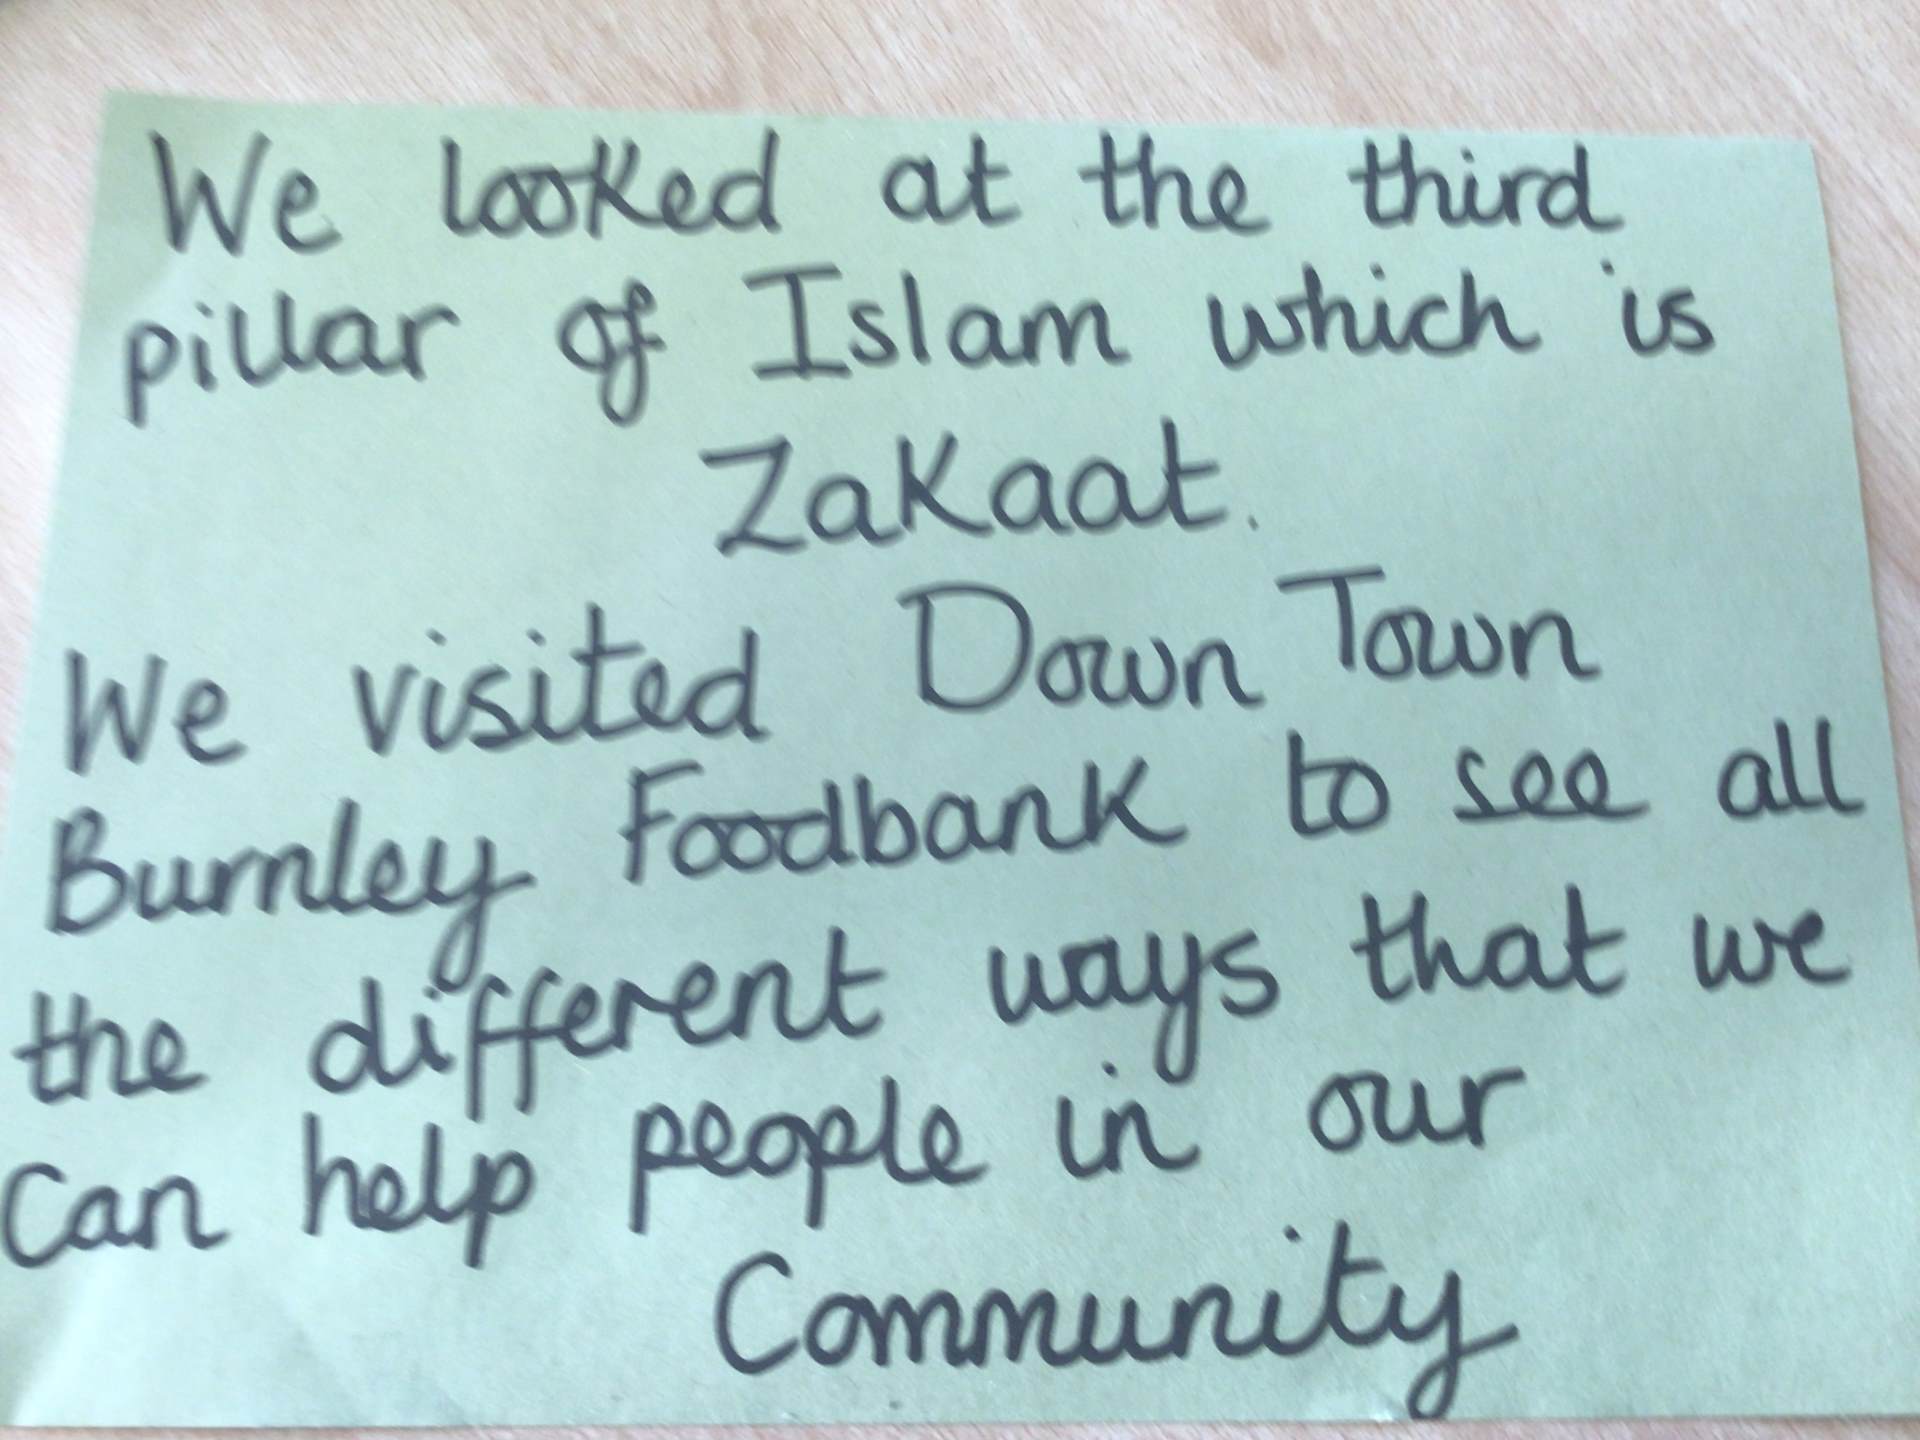 We looked at the third
pillar of Islam which is
Zakaat.
We visited Down Town
Burnley Foodbank to see all
the different ways that we
Can help people in our
Community